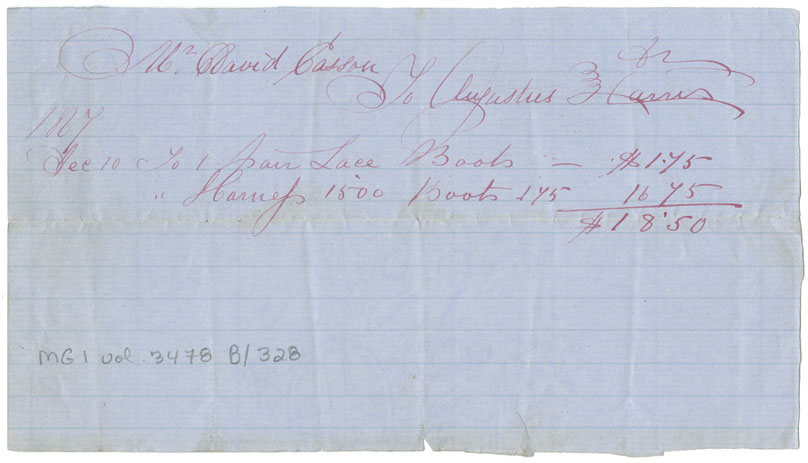 Mr. David Casson Dr
To Augustus Harris
1867
Dec 10 To 1 pair Lace Boots — $1.75
" Harness 1500 Boots 175 1675
$18.50
MG1 vol. 3478 B/328